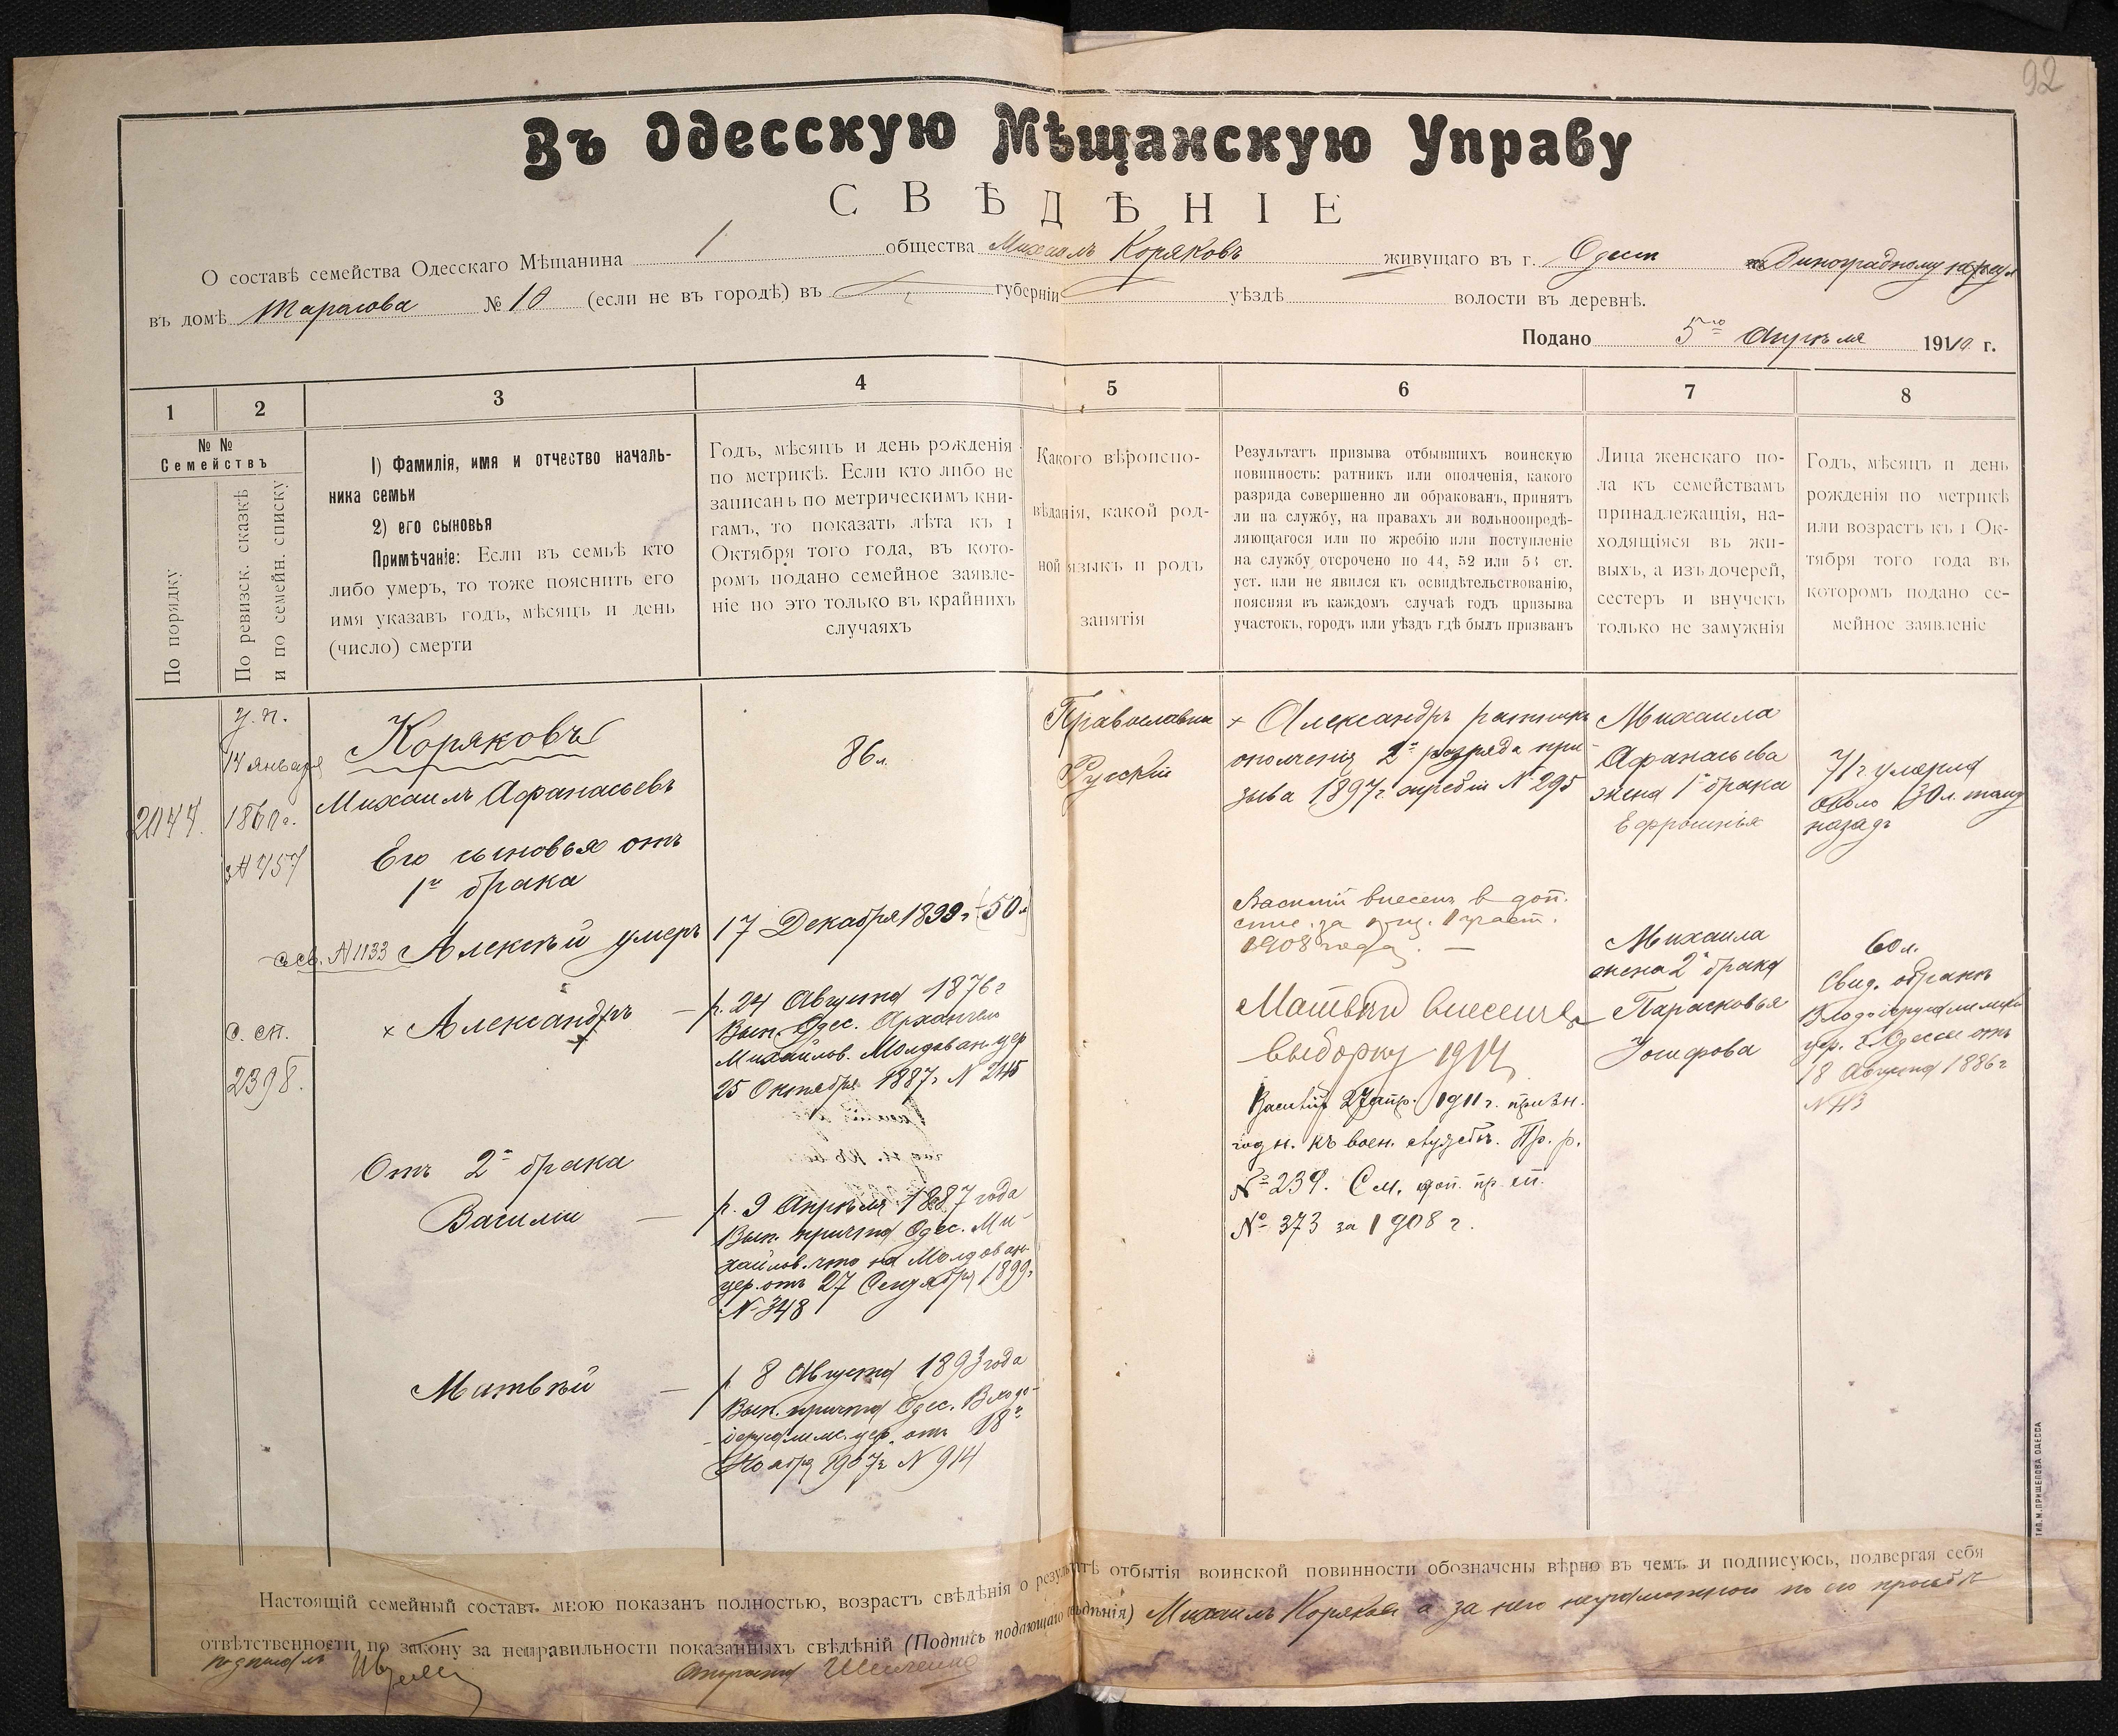 92
Въ Одесскую Мѣщанскую Управу
СВѢДѢНІЕ
О составѣ семейства Одесскаго Мѣщанина 1 общества Михаилъ Коряковъ живущаго въ г. Одессѣ Виноградному
въ домѣ Тарасова № 10 (если не въ городѣ) въ губерніи уѣздѣ волости въ деревнѣ.
Подано 5го Апрѣля 1910 г.
1
2
3
4
5
6
7
8
№ №
Семействъ
По порядку
По ревизск. сказкѣ
и по семейн. списку
1) Фамилія, имя и отчество началь-
ника семьи
2) его сыновья
Примѣчаніе: Если въ семьѣ кто
либо умеръ, то тоже пояснить его
имя указавъ годъ, мѣсяцъ и день
(число) смерти
Годъ, мѣсяцъ и день рожденія
по метрикѣ. Если кто либо не
записанъ по метрическимъ кни-
гамъ, то показать лѣта къ 1
Октября того года, въ кото-
ромъ подано семейное заявле-
ніе но это только въ крайнихъ
случаяхъ
Какого вѣроиспо-
вѣданія, какой род-
ной языкъ и родъ
занятія
Результатъ призыва отбывшихъ воинскую
повинность: ратникъ или ополченія, какого
разряда совершенно ли обракованъ, принятъ
ли на службу, на правахъ ли вольноопредѣ-
ляющагося или по жребію или поступленіе
на службу отсрочено по 44, 52 или 53 ст.
уст. или не явился къ освидѣтельствованію,
поясняя въ каждомъ случаѣ годъ призыва
участокъ, городъ или уѣздъ гдѣ былъ призванъ
Лица женскаго по-
ла къ семействамъ
принадлежащія, на-
ходящіяся въ жи-
выхъ, а изъ дочерей,
сестеръ и внучекъ
только не замужнія
Годъ, мѣсяцъ и день
рожденія по метрикѣ
или возрастъ къ 1 Ок-
тября того года въ
которомъ подано се-
мейное заявленіе
2044.
у. п.
14 января
1860г.
№ 457
с. сп.
2398.
Коряковъ
Михаилъ Афанасьевъ
Его сыновья отъ
1го брака
№ 1133 Алексѣй умеръ
× Александръ —
Отъ 2го брака
Василій —
Матвѣй —
86 л.
17 Декабря 1899 г. (50 л)
р. 24 Августа 1876 г
Вып. Одес. Архангело
Михайлов. Молдован. цер
25 Октября 1887 г № 2145
р. 9 Апрѣля 1887 года
Вып. причта Одес. Ми-
хайлов. что на Молдован
цер. отъ 27 Сентября 1899 г
№ 348
р. 8 Августа 1893 года
Вып. причта Одес. Входо-
іерусалимс. цер. отъ 18го
Ноября 1907 г. № 914
Православн
Русскій
× Александръ ратникъ
ополченія 2го разряда при-
зыва 1897 г. жребій № 295
Василій внесенъ в доп.
спис. за 1 участ.
1908 года. —
Матвѣй внесенъ в
выборку 1914
Василій 27 апр. 1911 г. призн.
годн. къ воен. службѣ. Пр. р.
№ 239. См. доп. пр. сп.
№ 373 за 1908 г.
Михаила
Афанасьева
жена 1го брака
Ефросинья
Михаила
жена 2го брака
Парасковья
Іосифова
71 г. умерла
около 30 л. тому
назадъ
60 л.
Свид. о бракѣ
Входоіерусалимской
цер. г. Одессы отъ
18 Августа 1886 г
№ 113
Настоящій семейный составъ мною показанъ полностью, возрастъ свѣдѣнія о результатѣ отбытія воинской повинности обозначены вѣрно въ чемъ и подписуюсь, подвергая себя
отвѣтственности по закону за неправильности показанныхъ свѣдѣній (Подпись подающаго свѣдѣнія) Михаилъ Коряковъ а за него неграмотного по его просьбѣ
подписалъ
ТИП. М. ПРИЩЕПОВА ОДЕССА